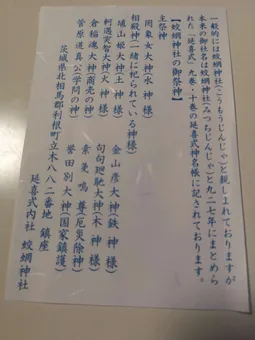 一般的には蛟蝄神社(こうもうじんじゃ)と親しまれておりますが
本来の御社名は蛟蝄神社(みつちじんじゃ)と九二七年にまとめら
れた「延喜式」九巻・十巻の延喜式神名帳に記されております。
【蛟蝄神社の御祭神】
主祭神
罔象女大神(水神様)
相殿神(一緒に祀られている神様)
埴山姫大神(土神様)
金山彦大神(鉄神様)
軻遇突智大神(火神様)
句句廼馳大神(木神様)
倉稲魂大神(商売の神)
素戔嗚尊(厄災除神)
菅原道真公(学問の神)
誉田別大神(国家鎮護)
茨城県北相馬郡利根町立木八八二番地 鎮座
延喜式内社 蛟蝄神社